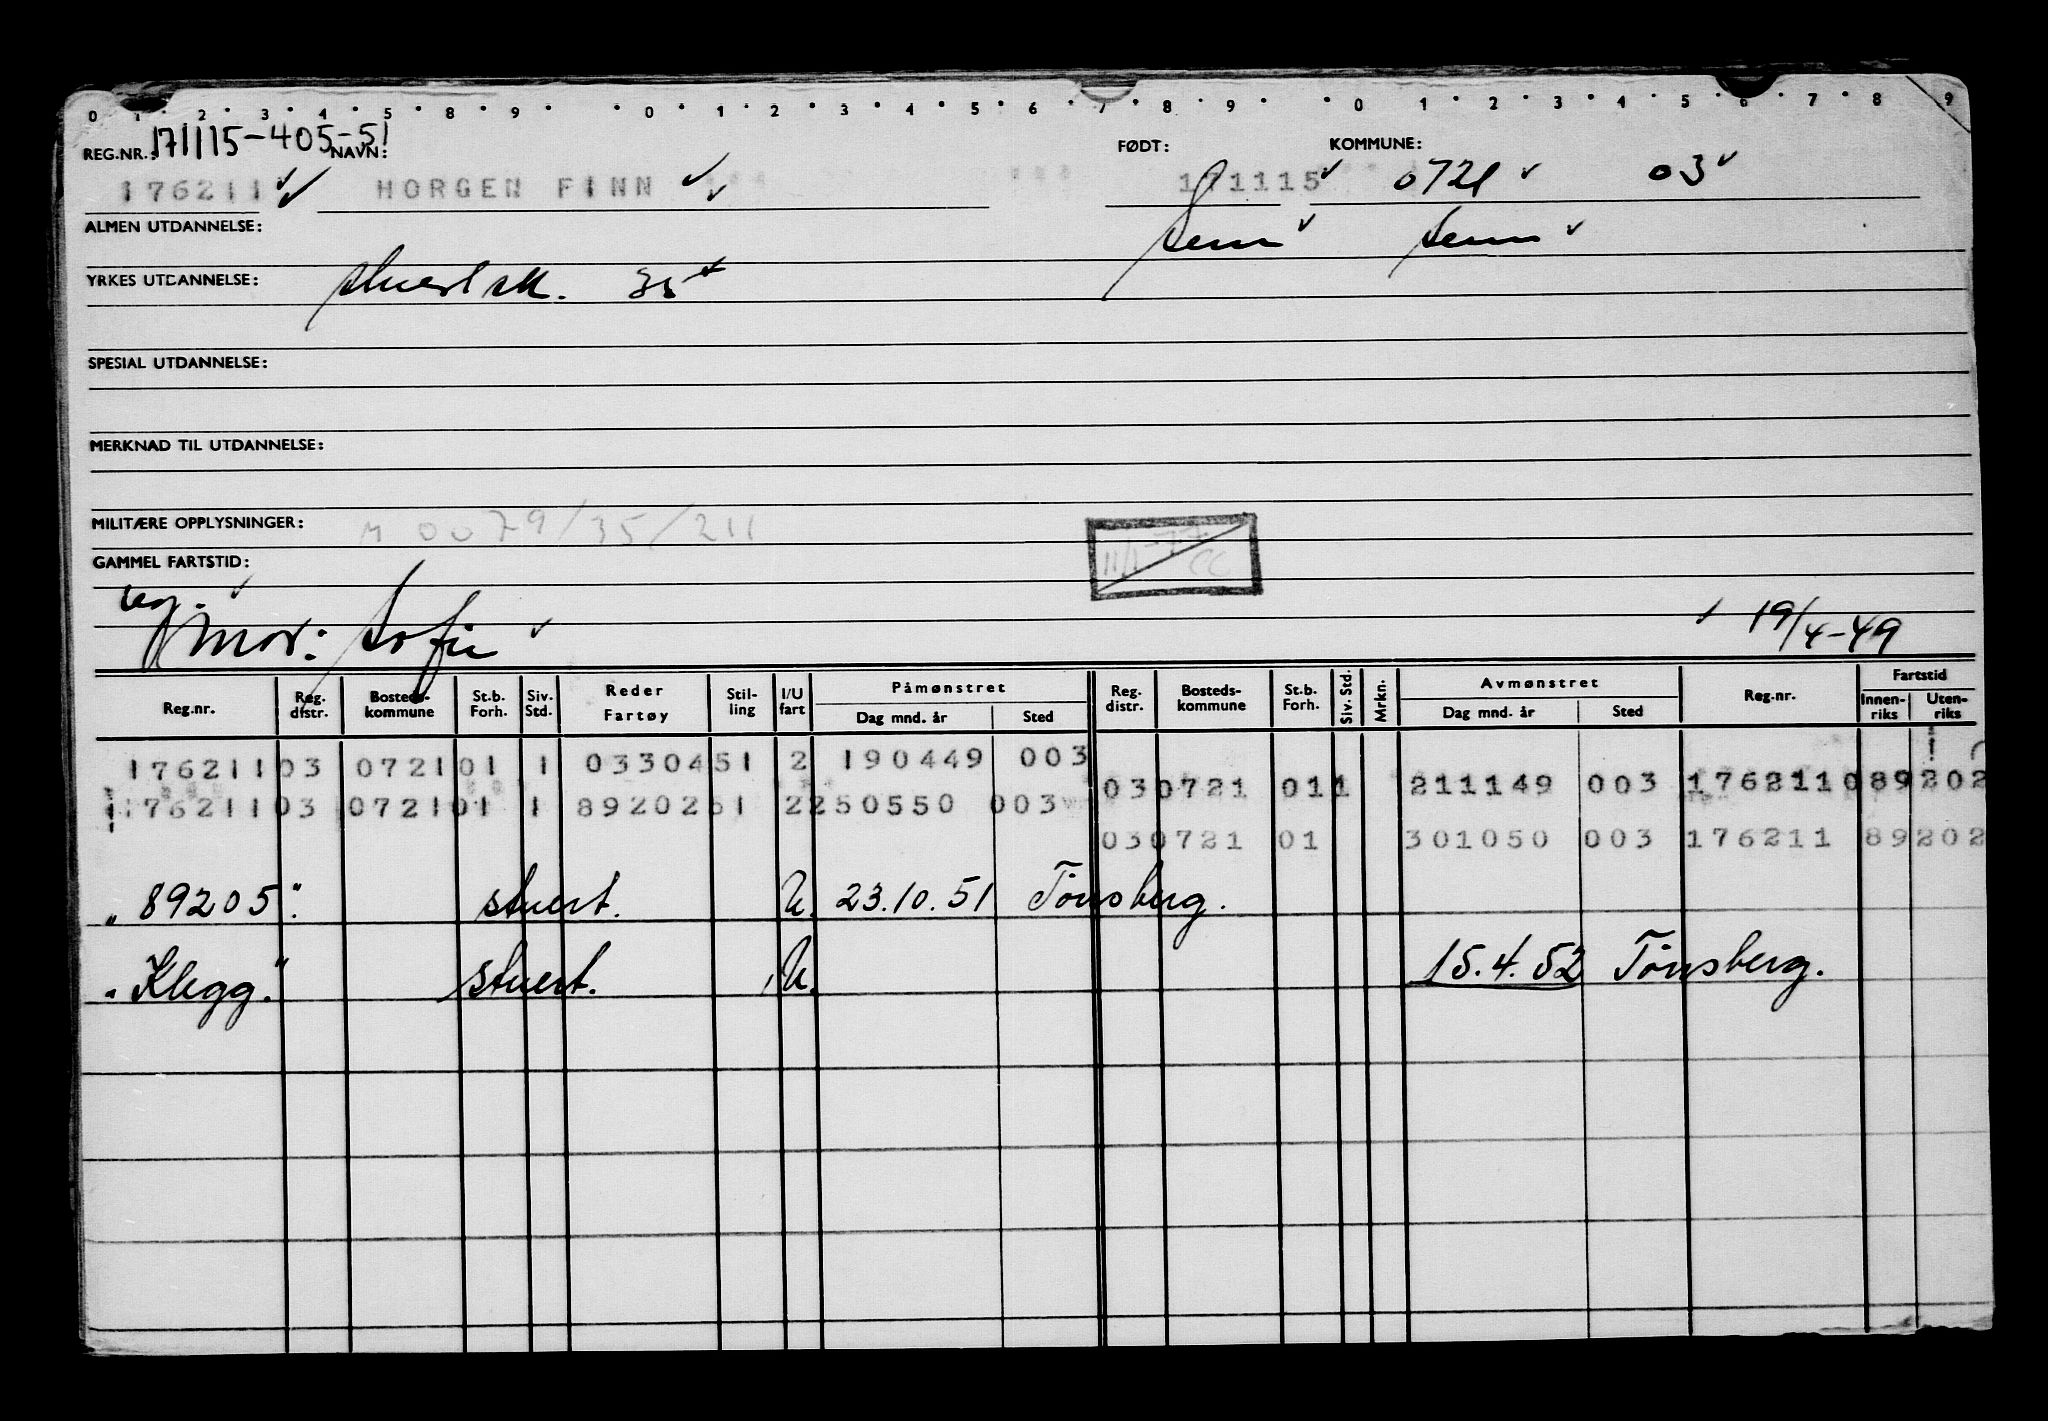 0 1 2 3 4 5 8 9 0 1 2 3 4 5 6 7 8 9 0 1 2 3 4 5 6 7 8 9
REG.NR.: 171115-405-51 NAVN: FØDT: KOMMUNE:
176211 HORGEN FINN 171115 0721 03
ALMEN UTDANNELSE: Sem Sem
YRKES UTDANNELSE: stuertsk. 35
SPESIAL UTDANNELSE:
MERKNAD TIL UTDANNELSE:
MILITÆRE OPPLYSNINGER: M 0079/35/211
GAMMEL FARTSTID: 11/1-77 CC
Mor: Sofie 19/4-49
Reg.nr. Reg. distr. Bosteds-kommune St.b. Forh. Siv. Std. Reder Fartøy Stil-ling I/U fart Påmønstret Dag mnd. år Sted Reg. distr. Bosteds-kommune St.b. Forh. Siv. Std. Mrkn. Avmønstret Dag mnd. år Sted Reg.nr. Fartstid Innen-riks Uten-riks
176211 03 0721 01 1 0330451 2 190449 003
030721 011 211149 003 176211 089202
176211 03 0721 01 1 8920251 2 250550 003
030721 01 301050 003 176211 89202
"89205". stuert. U. 23.10.51 Tönsberg.
"Klegg." stuert. U. 15.4.52 Tönsberg.